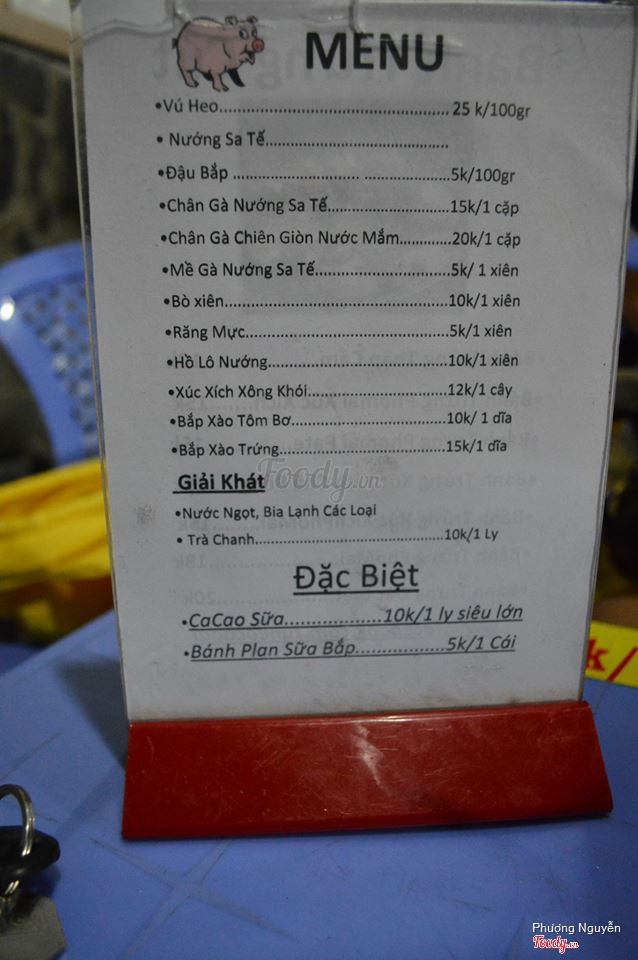 MENU
•Vú Heo.................................................. 25 k/100gr
• Nướng Sa Tế........................................
•Đậu Bắp ............................ ...................5k/100gr
•Chân Gà Nướng Sa Tế...........................15k/1 cặp
•Chân Gà Chiên Giòn Nước Mắm............20k/1 cặp
•Mề Gà Nướng Sa Tế..............................5k/ 1 xiên
•Bò xiên..................................................10k/1 xiên
•Răng Mực..............................................5k/1 xiên
•Hồ Lô Nướng.........................................10k/1 xiên
•Xúc Xích Xông Khói................................12k/1 cây
•Bắp Xào Tôm Bơ...................................10k/ 1 dĩa
•Bắp Xào Trứng......................................15k/1 dĩa
Foody.vn
Giải Khát
•Nước Ngọt, Bia Lạnh Các Loại
• Trà Chanh..........................................10k/1 Ly
Đặc Biệt
•CaCao Sữa.................10k/1 ly siêu lớn
•Bánh Plan Sữa Bắp................5k/1 Cái
k/
Phượng Nguyễn
Foody.vn